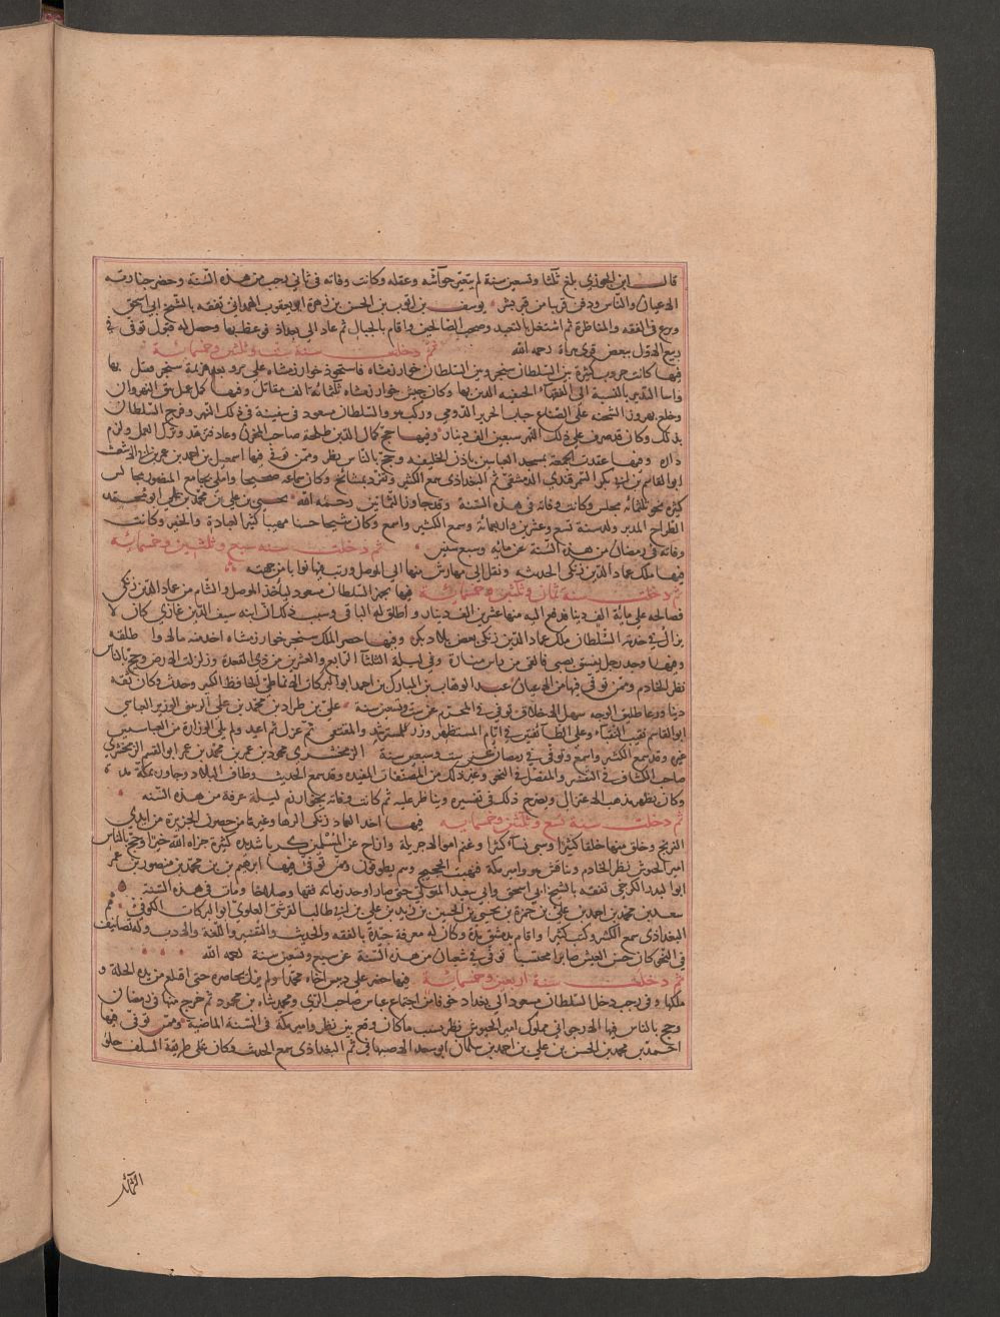 قال ابن الجوزي بلغ ثلثا وتسعين سنة لم يتغير حواسه وعقله وكانت وفاته في ثاني رجب من هذه السنة وحضر جنازته
الاعيان والناس ودفن قريبا من قبر بشر يوسف بن ايوب بن الحسن بن زهرة ابو يعقوب الهمداني تفقه بالشيخ ابي اسحق
وبرع في الفقه والمناظرة ثم اشتغل بالتعبد وصحب الصالحين واقام بالجبال ثم عاد الي بغداد فوعظ بها وحصل له قبول توفي في
ربيع الاول ببعض قري هراة رحمه الله ثم دخلت سنة ست وثلثين وخمسمائة
فيها كانت حروب كثيرة بين السلطان سنجر وبين السلطان خوارزمشاه فاستحوذ خوارزمشاه علي مرو بعد هزيمة سنجر فقتل بها
واسا التدبير بالنسبة الي الفقهاء الحنفيه الذين بها وكان جيش خوارزمشاه ثلثمائة الف مقاتل وفيها كمل عمل بثق النهروان
وخلع بهروز الشحنه علي الصناع جباب الحرير الرومي وركب هو والسلطان مسعود في سفينة في ذلك النهر وفرح السلطان
بذلك وكان قد صرف علي ذلك النهر سبعين الف دينار وفيها حج كمال الدين طلحة صاحب المخزن وعاد فتزهد وترك العمل ولزم
داره وفيها عقدت الجمعة بمسجد العباسيين باذن الخليفه وحج بالناس نظر وممن توفي فيها اسمعيل بن احمد بن عمر بن ابي الاشعث
ابو القاسم بن ابي بكر السمرقندي الدمشقي ثم البغدادي سمع الكثير وتفرد بمشائخ وكان سماعه صحيحا واملي بجامع المنصور مجالس
كثيرة نحو ثلثمائة مجلس وكانت وفاته في هذه السنة وقد جاوز الثمانين رحمه الله يحيي بن علي بن محمد بن علي ابو محمد
الطراح المدير ولد سنة تسع وعشرين واربعمائة وسمع الكثير واسمع وكان شيخا حسنا مهيبا كثير العبادة والخير وكانت
وفاته في رمضان من هذه السنة عن مائه وسبع سنين ثم دخلت سنه سبع وثلثين وخمسمائه
فيها ملك عماد الدين زنكي الحديثه ونقل آل مهارش منها الي الموصل ورتب فيها نوابا من جهته
ثم دخلت سنة ثمان وثلثين وخمسمائة فيها تجهز السلطان مسعود ليأخذ الموصل والشام من عماد الدين زنكي
فصالحه علي مائة الف دينار فدفع اليه منها عشرين الف دينار واطلق له الباقي وسبب ذلك ان ابنه سيف الدين غازي كان لا
يزال في خدمة السلطان ملك عماد الدين زنكي بعض بلاد بكر وفيها حصر الملك سنجر خوارزمشاه اخذ منه مالا وا طلقه
وفيها وجد رجل يفسق بصبي فالقي من راس منارة وفي ليلة الثلثا الرابع والعشرين من ذي القعدة زلزلت الارض وحج بالناس
نظر الخادم وممن توفي فيها من الاعيان عبد الوهاب بن المبارك بن احمد ابو البركات الانماطي الحافظ الكبير وحدث وكان ثقة
دينا ورعا طليق الوجه سهل الاخلاق توفي في المحرم عن ست وتسعين سنة علي بن طراد بن محمد بن علي الزينبي الوزير العباسي
ابو القاسم نقيب النقباء وعلي الطائفتين في ايام المستظهر ووزر للمسترشد والمقتفي ثم عزل ثم اعيد ولم يلي الوزارة من العباسيين
غيره وقد سمع الكثير واسمع وتوفي في رمضان عن ست وسبعين سنة الزمخشري محمود بن عمر بن محمد بن عمر ابو القسم الزمخشري
صاحب الكشاف في التفسير والمفصل في النحو وغير ذلك من المصنفات المفيدة وقد سمع الحديث وطاف البلاد وجاور بمكة مدة
وكان يظهر مذهب الاعتزال ويصرح ذلك في تفسيره ويناظر عليه ثم كانت وفاته بخوارزم ليلة عرفة من هذه السنه
ثم دخلت سنة تسع وثلثين وخمسمايه فيها اخذ العماد زنكي الرها وغيرها من حصون الجزيرة من ايدي
الفرنج وخلق منها خلقا كثيرا وسبي نساء كثيرا وغنم اموالا جزيلة وازاح عن المسلمين كربا شديده كثيرة جزاه الله خيرا وحج بالناس
امير الجيوش نظر الخادم وتنافس هو وامير مكة فنهب الحجيج وهم يطوفون وممن توفي فيها ابرهيم بن محمد بن منصور بن عمر
ابو البدر الكرخي تفقه بالشيخ ابي اسحق وابي سعد المتولي حتي صار اوحد زمانه فقها وصلاحا ومات في هذه السنة
سعد بن محمد بن احمد بن علي بن حمزة بن يحيي بن الحسين بن زيد بن علي بن ابي طالب القرشي العلوي ابو البركات الكوفي ثم
البغدادي سمع الكثير وكتب كثيرا واقام بدمشق مدة وكان له معرفة جيدة بالفقه والحديث والتفسير واللغة والادب وله تصانيف
في النحو كان خشن العيش صابرا محتسبا توفي في شعبان من هذه السنة عن سبع وتسعين سنة رحمه الله
ثم دخلت سنة اربعين وخمسمائة فيها حضر علي دبيس اخاه محمدا ولم يزل يحاصره حتي اقتلع من يده الحلة و
ملكها وفي رجب دخل السلطان مسعود الي بغداد خوفا من اجتماع عباس صاحب الري ومحمد شاه بن محمود ثم خرج منها في رمضان
وحج بالناس فيها الارجواني مملوك امير الجيوش نظر بسبب ما كان وقع بين نظر وامير مكة في السنة الماضية وممن توفي فيها
احمد بن محمد بن الحسن بن علي بن احمد بن سلمان ابو سعد الاصبهاني ثم البغدادي سمع الحديث وكان علي طريقة السلف حلو
الشمائل